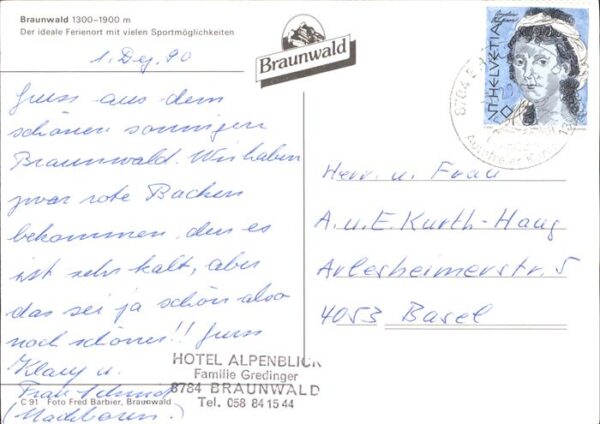 Braunwald 1300–1900 m
Der ideale Ferienort mit vielen Sportmöglichkeiten
Braunwald
HELVETIA
1. Dez. 90
Gruss aus dem
schönen sonnigen
Braunwald. Wir haben
zwar rote Backen
bekommen, den es
ist sehr kalt, aber
das sei ja schön also
noch schöner!! Gruss
Klary u.
Frau Schmid
(Nachbaren.)
Herr. u. Frau
A. u. E. Kurth-Haug
Arlesheimerstr. 5
4053 Basel
HOTEL ALPENBLICK
Familie Gredinger
8784 BRAUNWALD
Tel. 058 84 15 44
C 91 Foto Fred Barbier, Braunwald